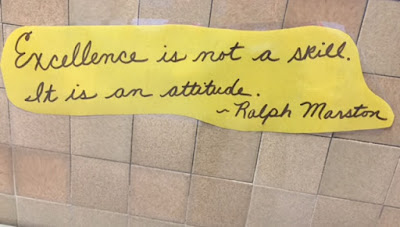 Excellence is not a skill.
It is an attitude.
~Ralph Marston